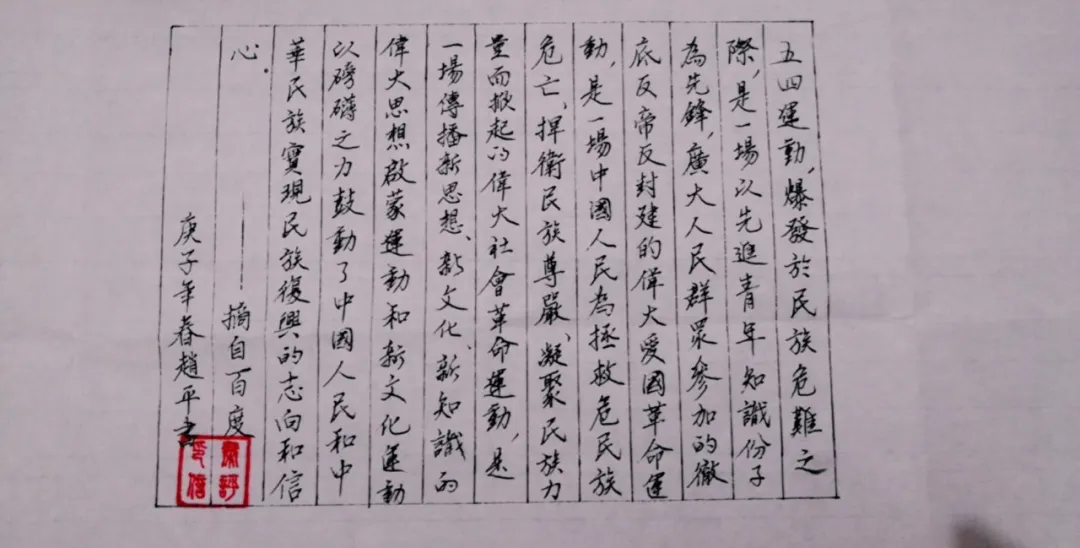 五四運動，爆發於民族危難之
際，是一場以先進青年知識份子
為先鋒，廣大人民群眾參加的徹
底反帝反封建的偉大愛國革命運
動，是一場中國人民為拯救危民族
危亡、捍衛民族尊嚴、凝聚民族力
量而掀起的偉大社會革命運動，是
一場傳播新思想、新文化、新知識的
偉大思想啟蒙運動和新文化運動
以磅礴之力鼓動了中國人民和中
華民族實現民族復興的志向和信
心.
——摘自百度
庚子年春趙平書